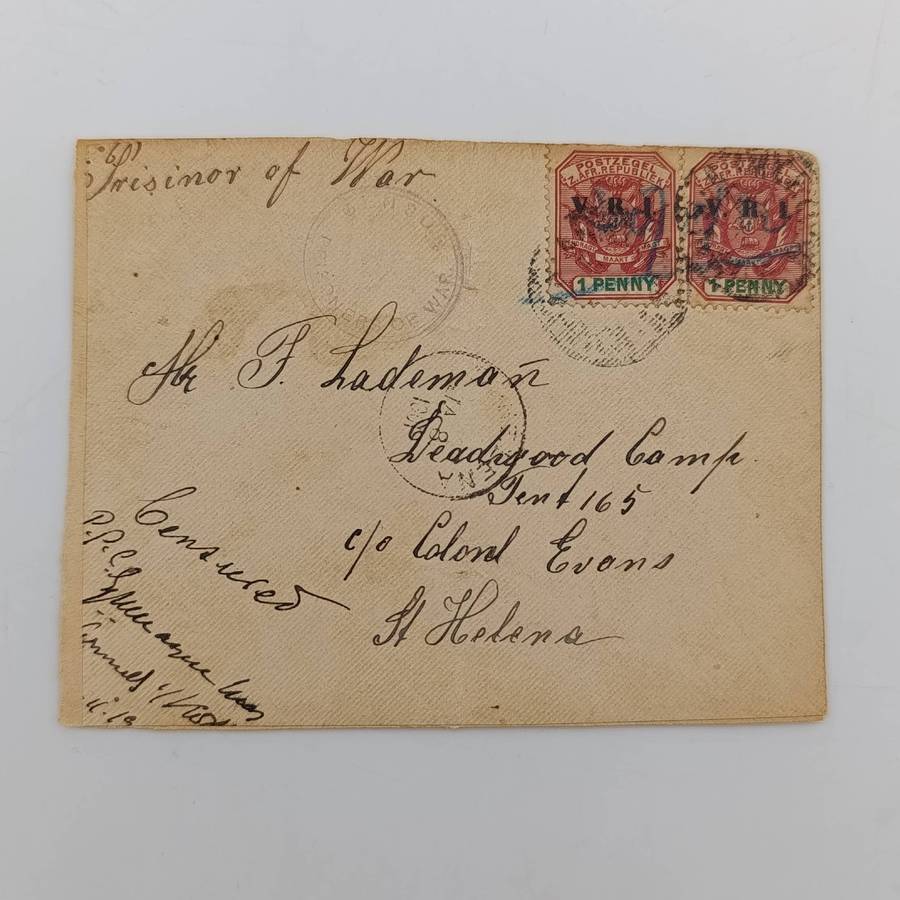 Prisinor of War
POSTZEGEL
Z. AFR. REPUBLIEK
V. R. I.
MAAKT
1 PENNY
POSTZEGEL
Z. AFR. REPUBLIEK
V. R. I
MAAKT
1 PENNY
OF WAR
Mr F. Lademañ
Deadwood Camp.
Tent 165
c/o Colonel Evans
St Helena
Censured
P.P.C.